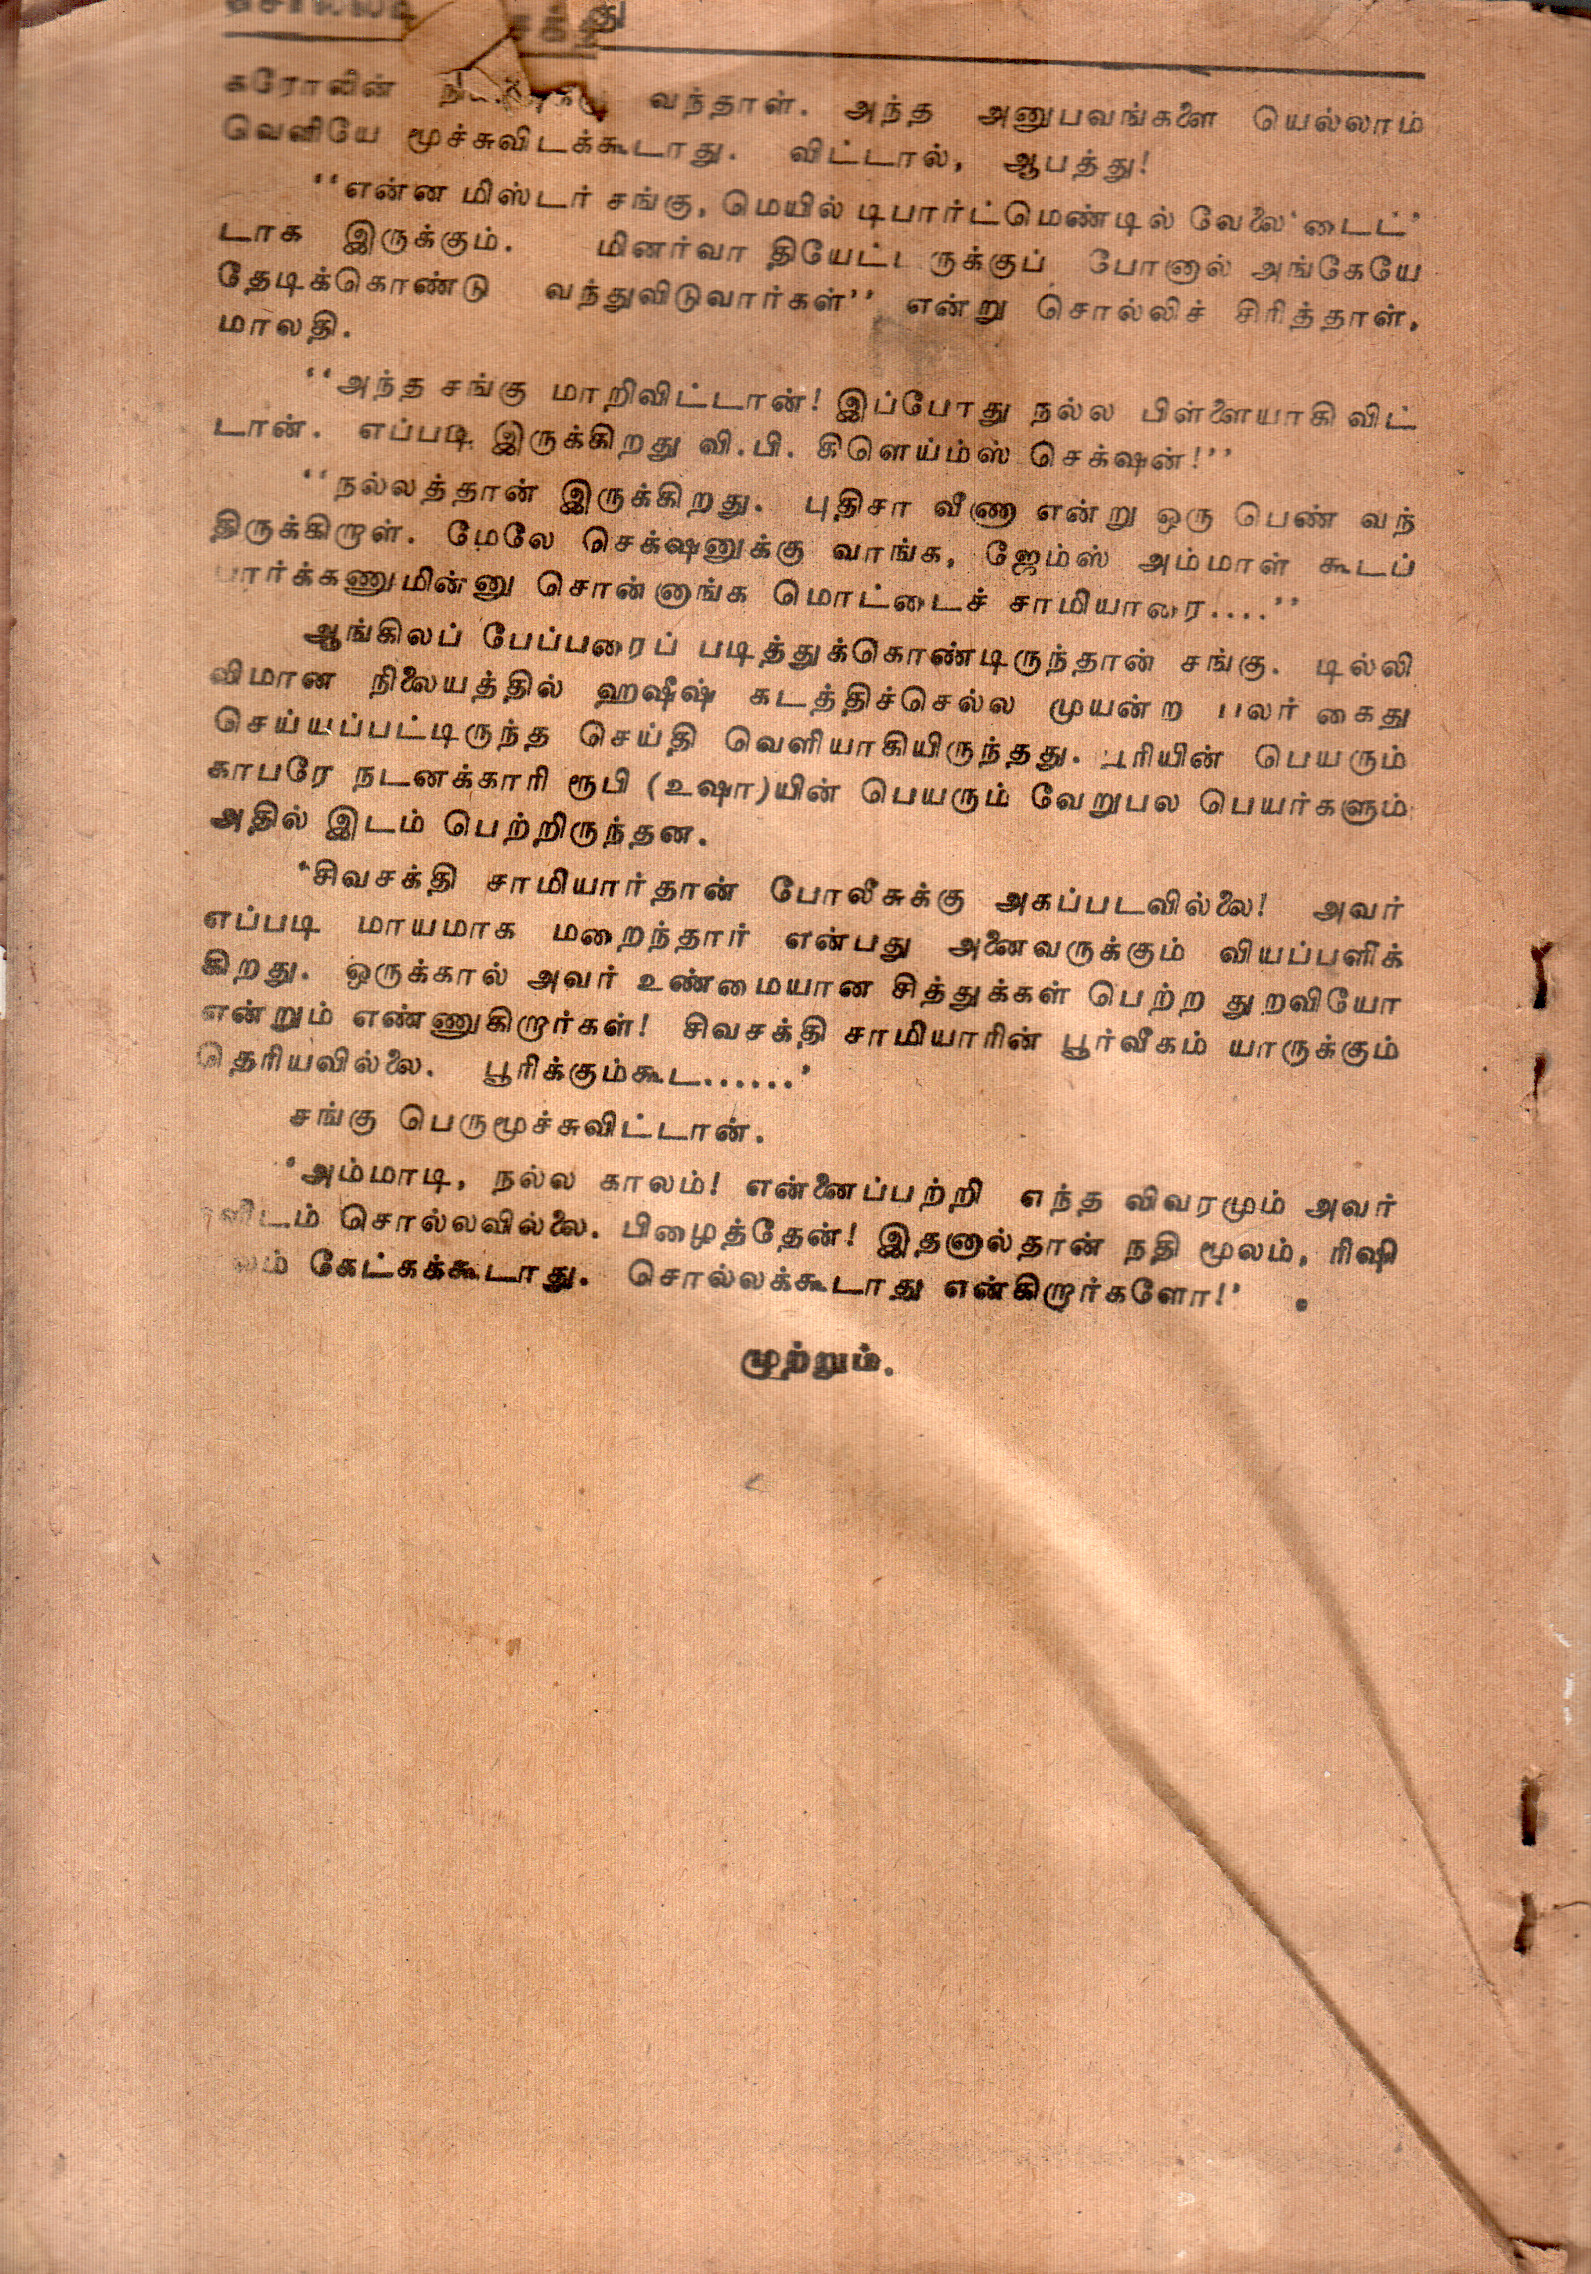 கரோலின் வந்தாள். அந்த அனுபவங்களை யெல்லாம்
வெளியே மூச்சுவிடக்கூடாது. விட்டால், ஆபத்து!
‘‘என்ன மிஸ்டர் சங்கு, மெயில் டிபார்ட்மெண்டில் வேலை ‘டைட்’
டாக இருக்கும். மினர்வா தியேட்டருக்குப் போனால் அங்கேயே
தேடிக்கொண்டு வந்துவிடுவார்கள்’’ என்று சொல்லிச் சிரித்தாள்,
மாலதி.
‘‘அந்த சங்கு மாறிவிட்டான்! இப்போது நல்ல பிள்ளையாகி விட்
டான். எப்படி இருக்கிறது வி.பி. கிளெய்ம்ஸ் செக்‌ஷன்!’’
‘‘நல்லத்தான் இருக்கிறது. புதிசா வீணா என்று ஒரு பெண் வந்
திருக்கிறாள். மேலே செக்‌ஷனுக்கு வாங்க, ஜேம்ஸ் அம்மாள் கூடப்
பார்க்கணுமின்னு சொன்னாங்க மொட்டைச் சாமியாரை....’’
ஆங்கிலப் பேப்பரைப் படித்துக்கொண்டிருந்தான் சங்கு. டில்லி
விமான நிலையத்தில் ஹஷீஷ் கடத்திச்செல்ல முயன்ற பலர் கைது
செய்யப்பட்டிருந்த செய்தி வெளியாகியிருந்தது. பூரியின் பெயரும்
காபரே நடனக்காரி ரூபி (உஷா)யின் பெயரும் வேறுபல பெயர்களும்
அதில் இடம் பெற்றிருந்தன.
‘சிவசக்தி சாமியார்தான் போலீசுக்கு அகப்படவில்லை! அவர்
எப்படி மாயமாக மறைந்தார் என்பது அனைவருக்கும் வியப்பளிக்
கிறது. ஒருக்கால் அவர் உண்மையான சித்துக்கள் பெற்ற துறவியோ
என்றும் எண்ணுகிறார்கள்! சிவசக்தி சாமியாரின் பூர்வீகம் யாருக்கும்
தெரியவில்லை. பூரிக்கும்கூட......’
சங்கு பெருமூச்சுவிட்டான்.
‘அம்மாடி, நல்ல காலம்! என்னைப்பற்றி எந்த விவரமும் அவர்
களிடம் சொல்லவில்லை. பிழைத்தேன்! இதனால்தான் நதி மூலம், ரிஷி
மூலம் கேட்கக்கூடாது. சொல்லக்கூடாது என்கிறார்களோ!’ •
முற்றும்.